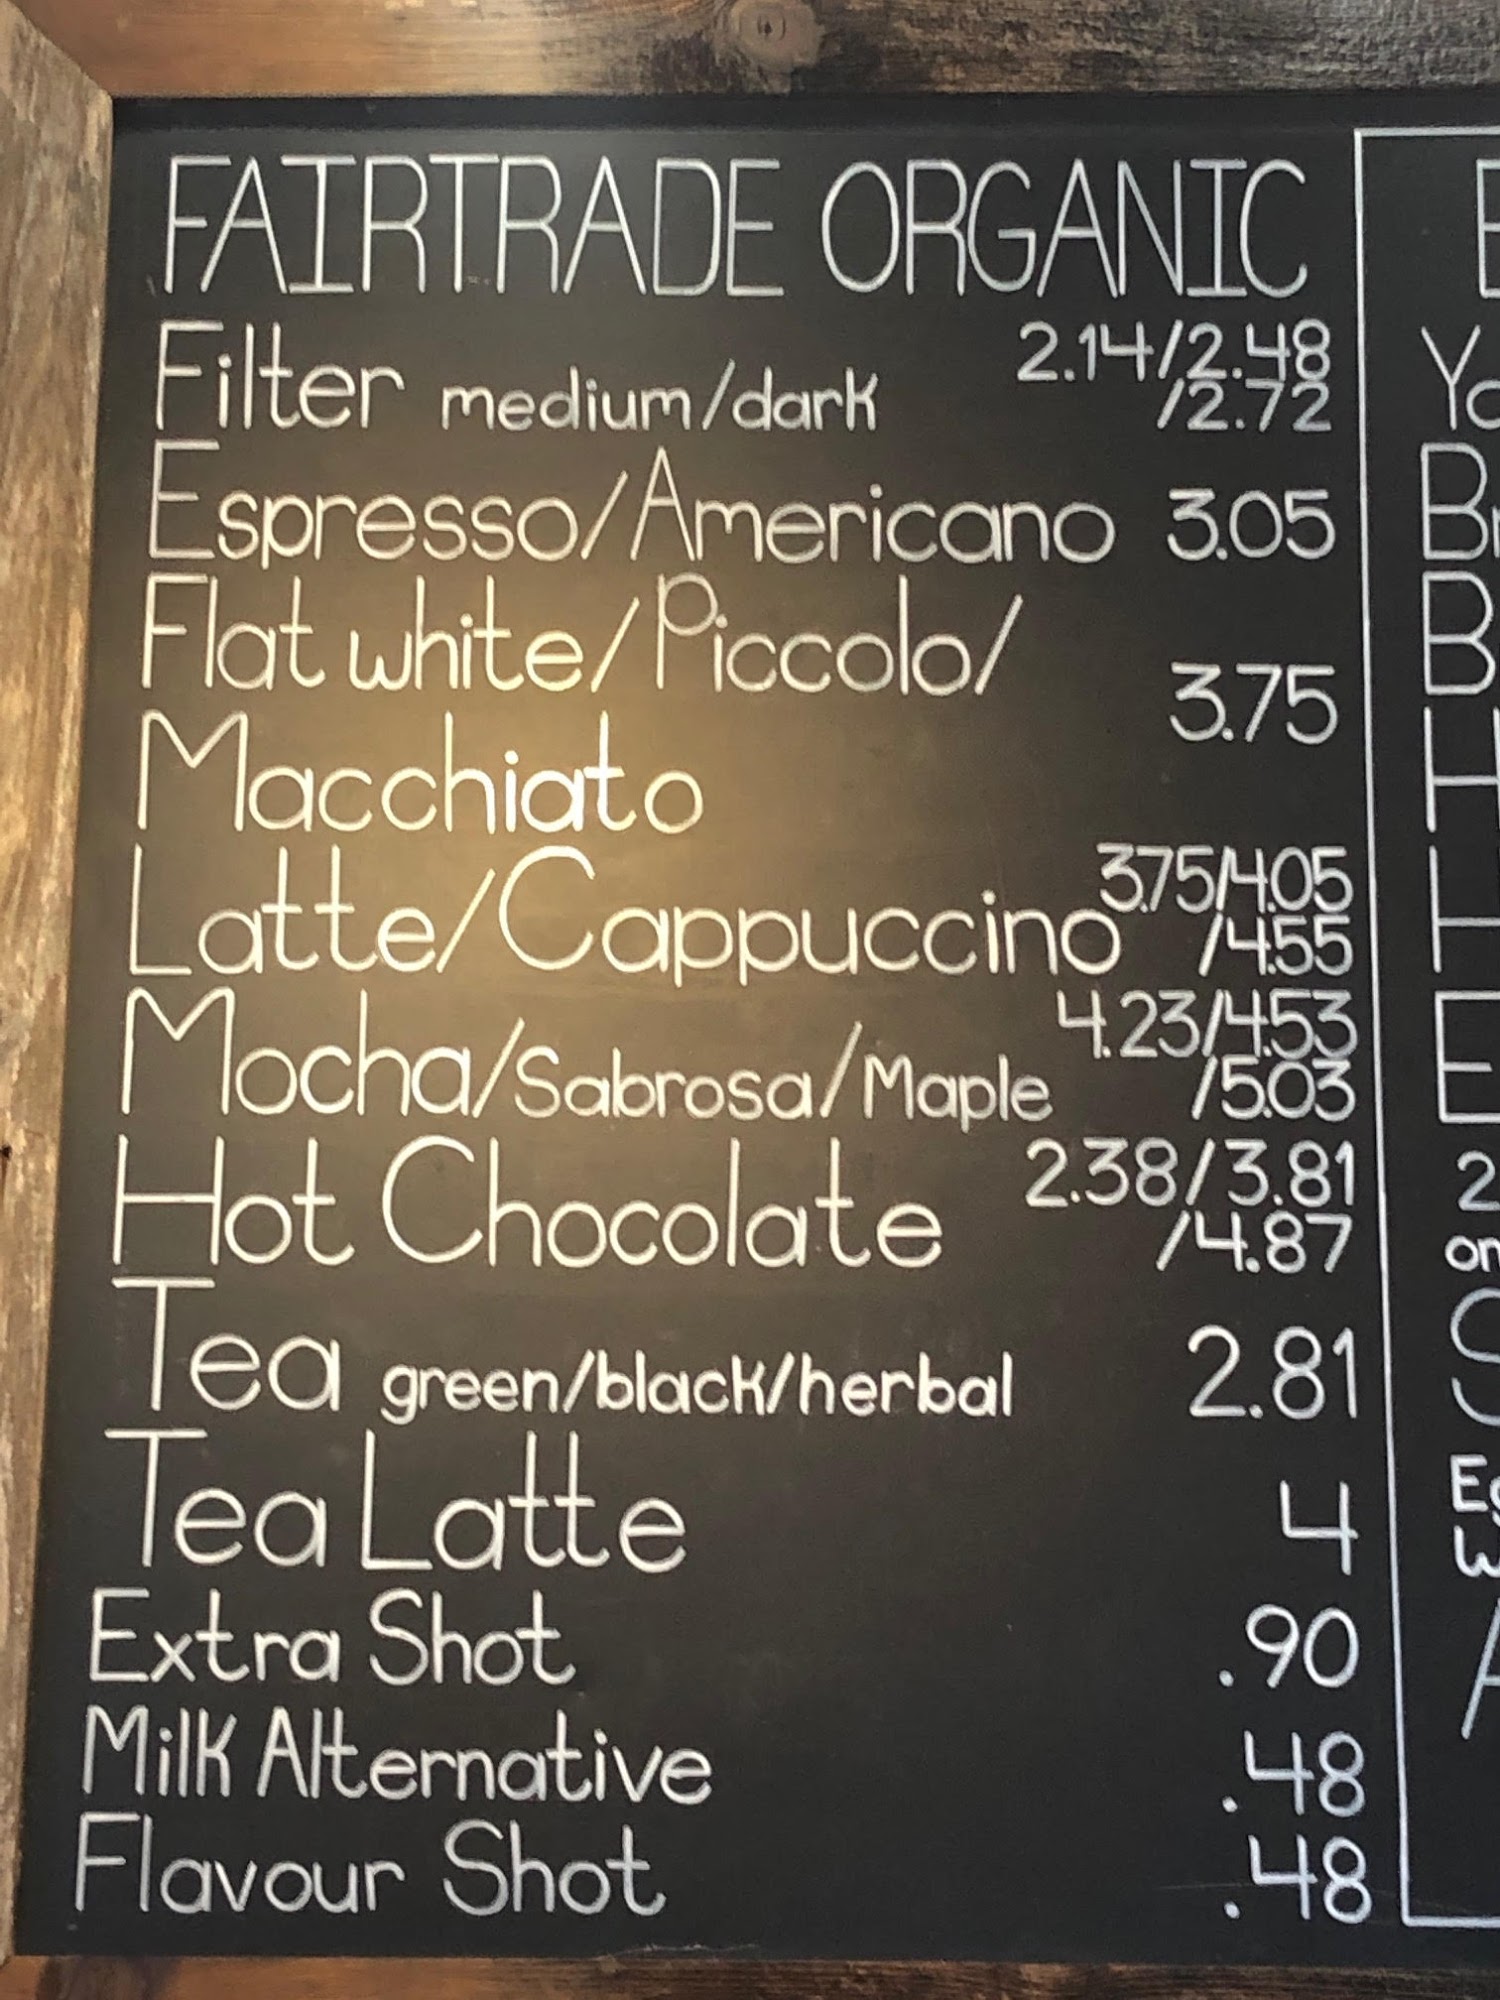 FAIRTRADE ORGANIC
Filter medium/dark 2.14/2.48
/2.72
Espresso/Americano 3.05
Flat white/Piccolo/
3.75
Macchiato
Latte/Cappuccino 3.75/4.05
/4.55
Mocha/Sabrosa/Maple 4.23/4.53
/5.03
Hot Chocolate 2.38/3.81
/4.87
Tea green/black/herbal 2.81
Tea Latte 4
Extra Shot .90
Milk Alternative .48
Flavour Shot .48